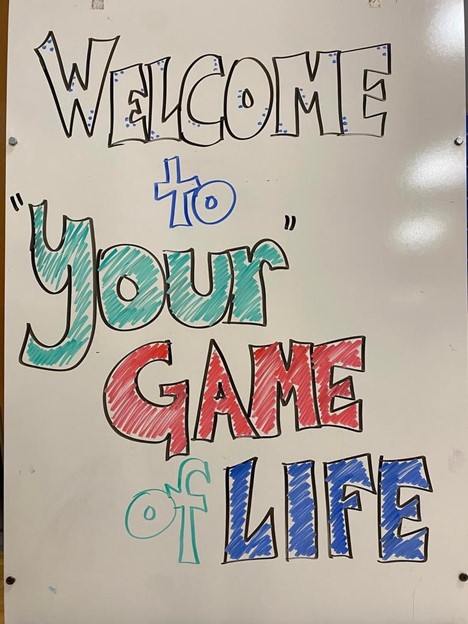 WELCOME
to
"your"
GAME
of LIFE